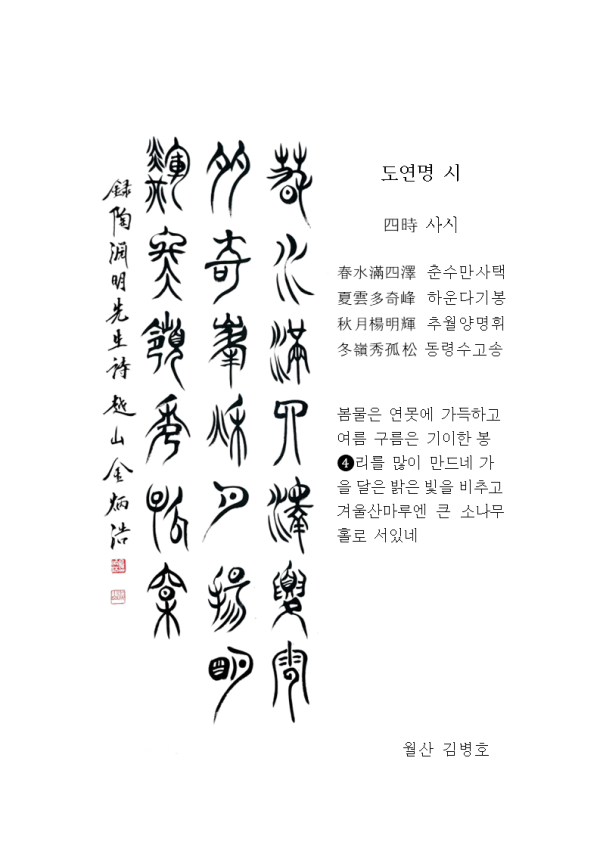 春水滿四澤夏雲
多奇峯秋月揚明
輝冬嶺秀孤松
録陶淵明先生詩 越山 金炳浩
도연명 시
四時 사시
春水滿四澤 춘수만사택
夏雲多奇峰 하운다기봉
秋月楊明輝 추월양명휘
冬嶺秀孤松 동령수고송
봄물은 연못에 가득하고
여름 구름은 기이한 봉
❹리를 많이 만드네 가
을 달은 밝은 빛을 비추고
겨울산마루엔 큰 소나무
홀로 서있네
월산 김병호